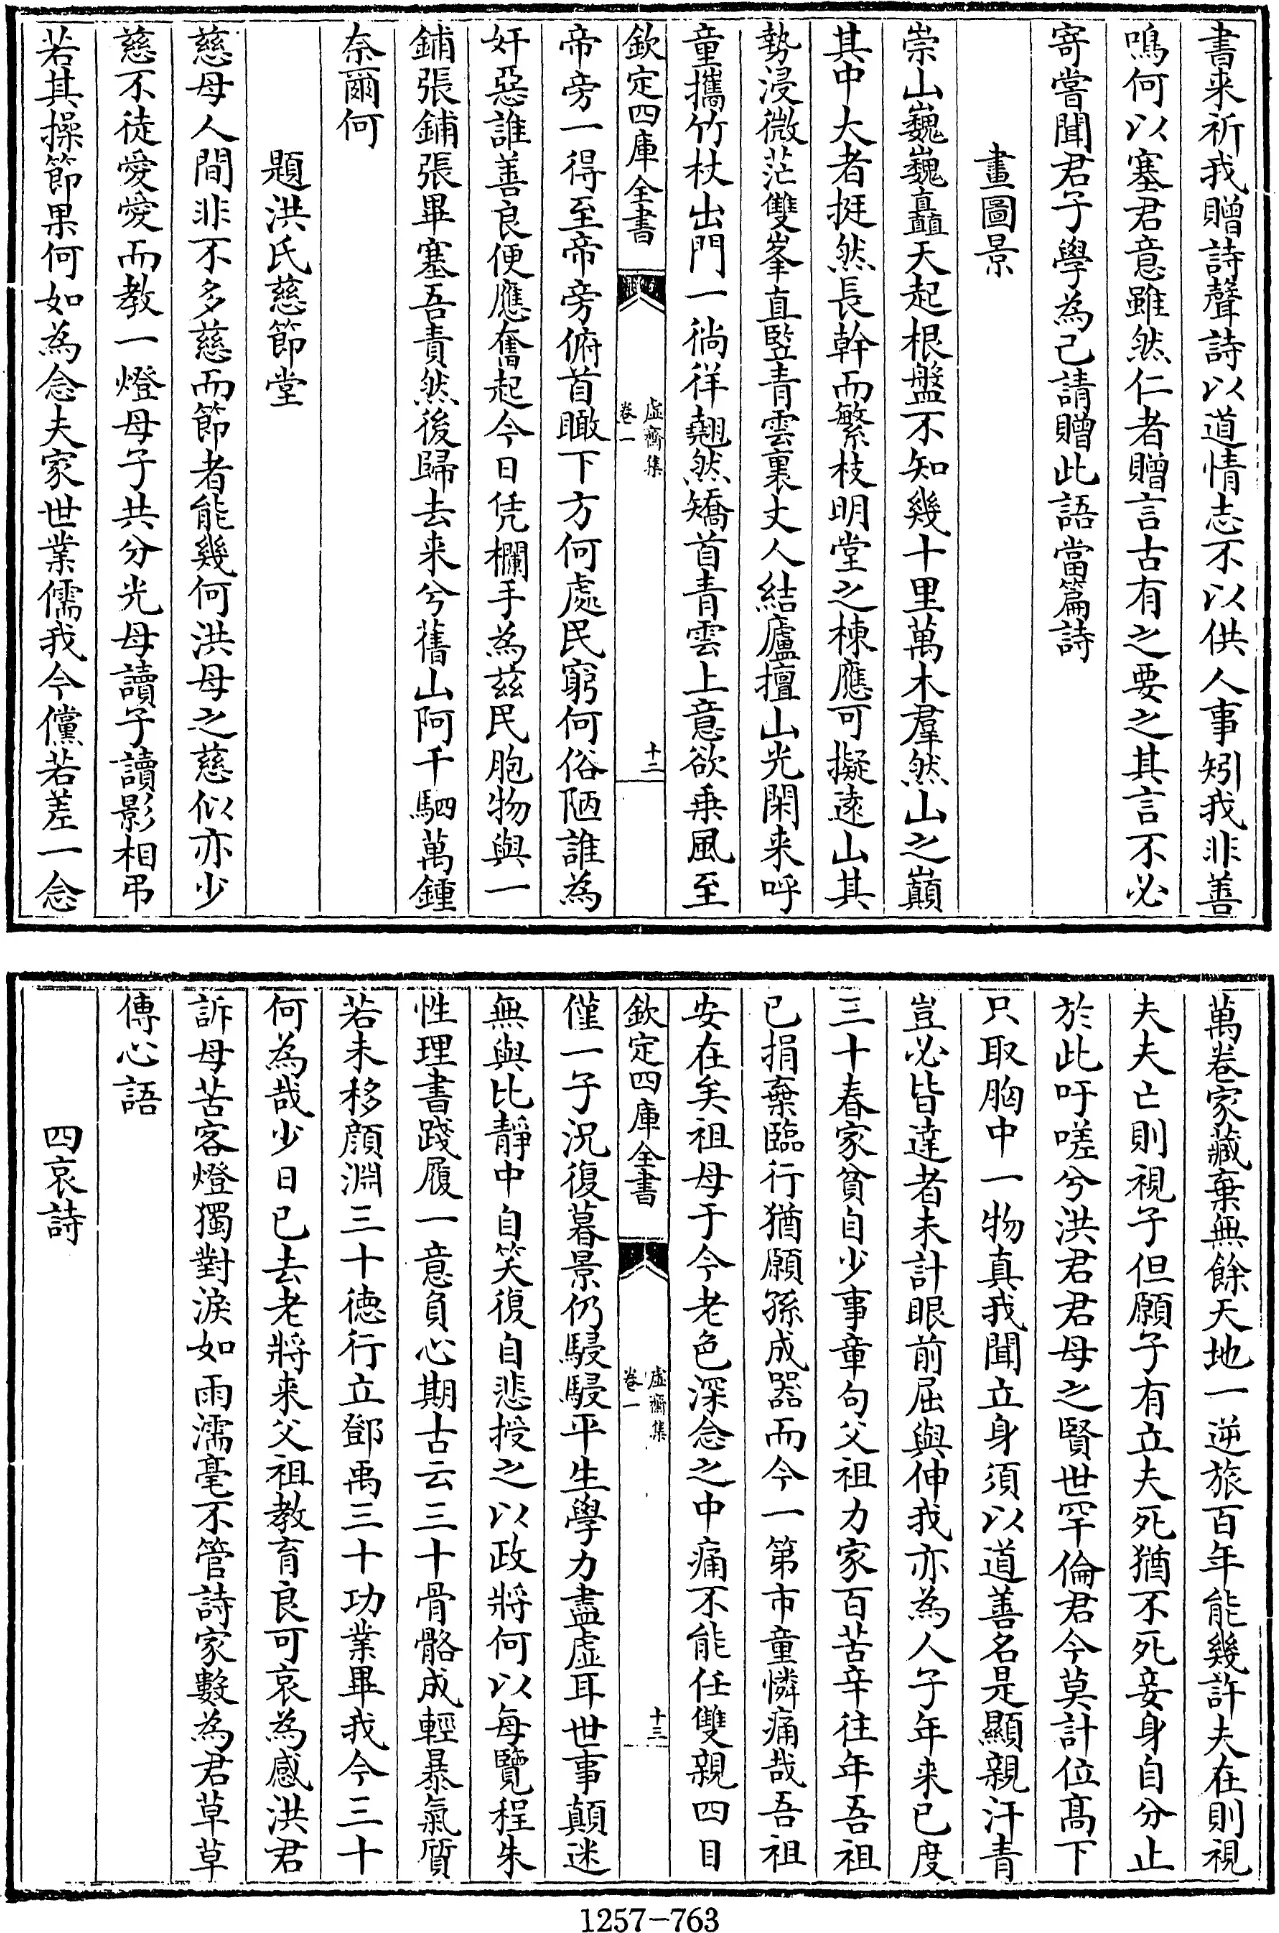 書来祈我贈詩聲詩以道情志不以供人事矧我非善
鳴何以塞君意雖然仁者贈言古有之要之其言不必
寄嘗聞君子學為己請贈此語當篇詩
畫圖景
崇山巍巍矗天起根盤不知幾十里萬木羣然山之巔
其中大者挺然長幹而繁枝明堂之棟應可擬逺山其
勢浸微茫雙峯直竪青雲裏丈人結廬擅山光閑来呼
童攜竹杖出門一徜徉翹然矯首青雲上意欲乗風至
欽定四庫全書
虛齋集
卷一
十二
帝旁一得至帝旁俯首瞰下方何處民窮何俗陋誰為
奸惡誰善良便應奮起今日凭欄手為兹民胞物與一
鋪張鋪張畢塞吾責然後歸去来兮舊山阿千駟萬鍾
奈爾何
題洪氏慈節堂
慈母人間非不多慈而節者能幾何洪母之慈似亦少
慈不徒愛愛而教一燈母子共分光母讀子讀影相弔
若其操節果何如為念夫家世業儒我今儻若差一念
萬卷家藏棄無餘天地一逆旅百年能幾許夫在則視
夫夫亡則視子但願子有立夫死猶不死妾身自分止
於此吁嗟兮洪君君母之賢世罕倫君今莫計位髙下
只取胸中一物真我聞立身須以道善名是顯親汗青
豈必皆達者未計眼前屈與伸我亦為人子年来已度
三十春家貧自少事章句父祖力家百苦辛往年吾祖
已捐棄臨行猶願孫成器而今一第市童憐痛哉吾祖
安在矣祖母于今老色深念之中痛不能任雙親四目
欽定四庫全書
虛齋集
卷一
十三
僅一子況復暮景仍駸駸平生學力盡虛耳世事顛迷
無與比靜中自笑復自悲授之以政將何以每覽程朱
性理書踐履一意負心期古云三十骨骼成輕暴氣質
若未移顔淵三十徳行立鄧禹三十功業畢我今三十
何為哉少日已去老將来父祖教育良可哀為感洪君
訴母苦客燈獨對淚如雨濡毫不管詩家數為君草草
傳心語
四哀詩
1257-763